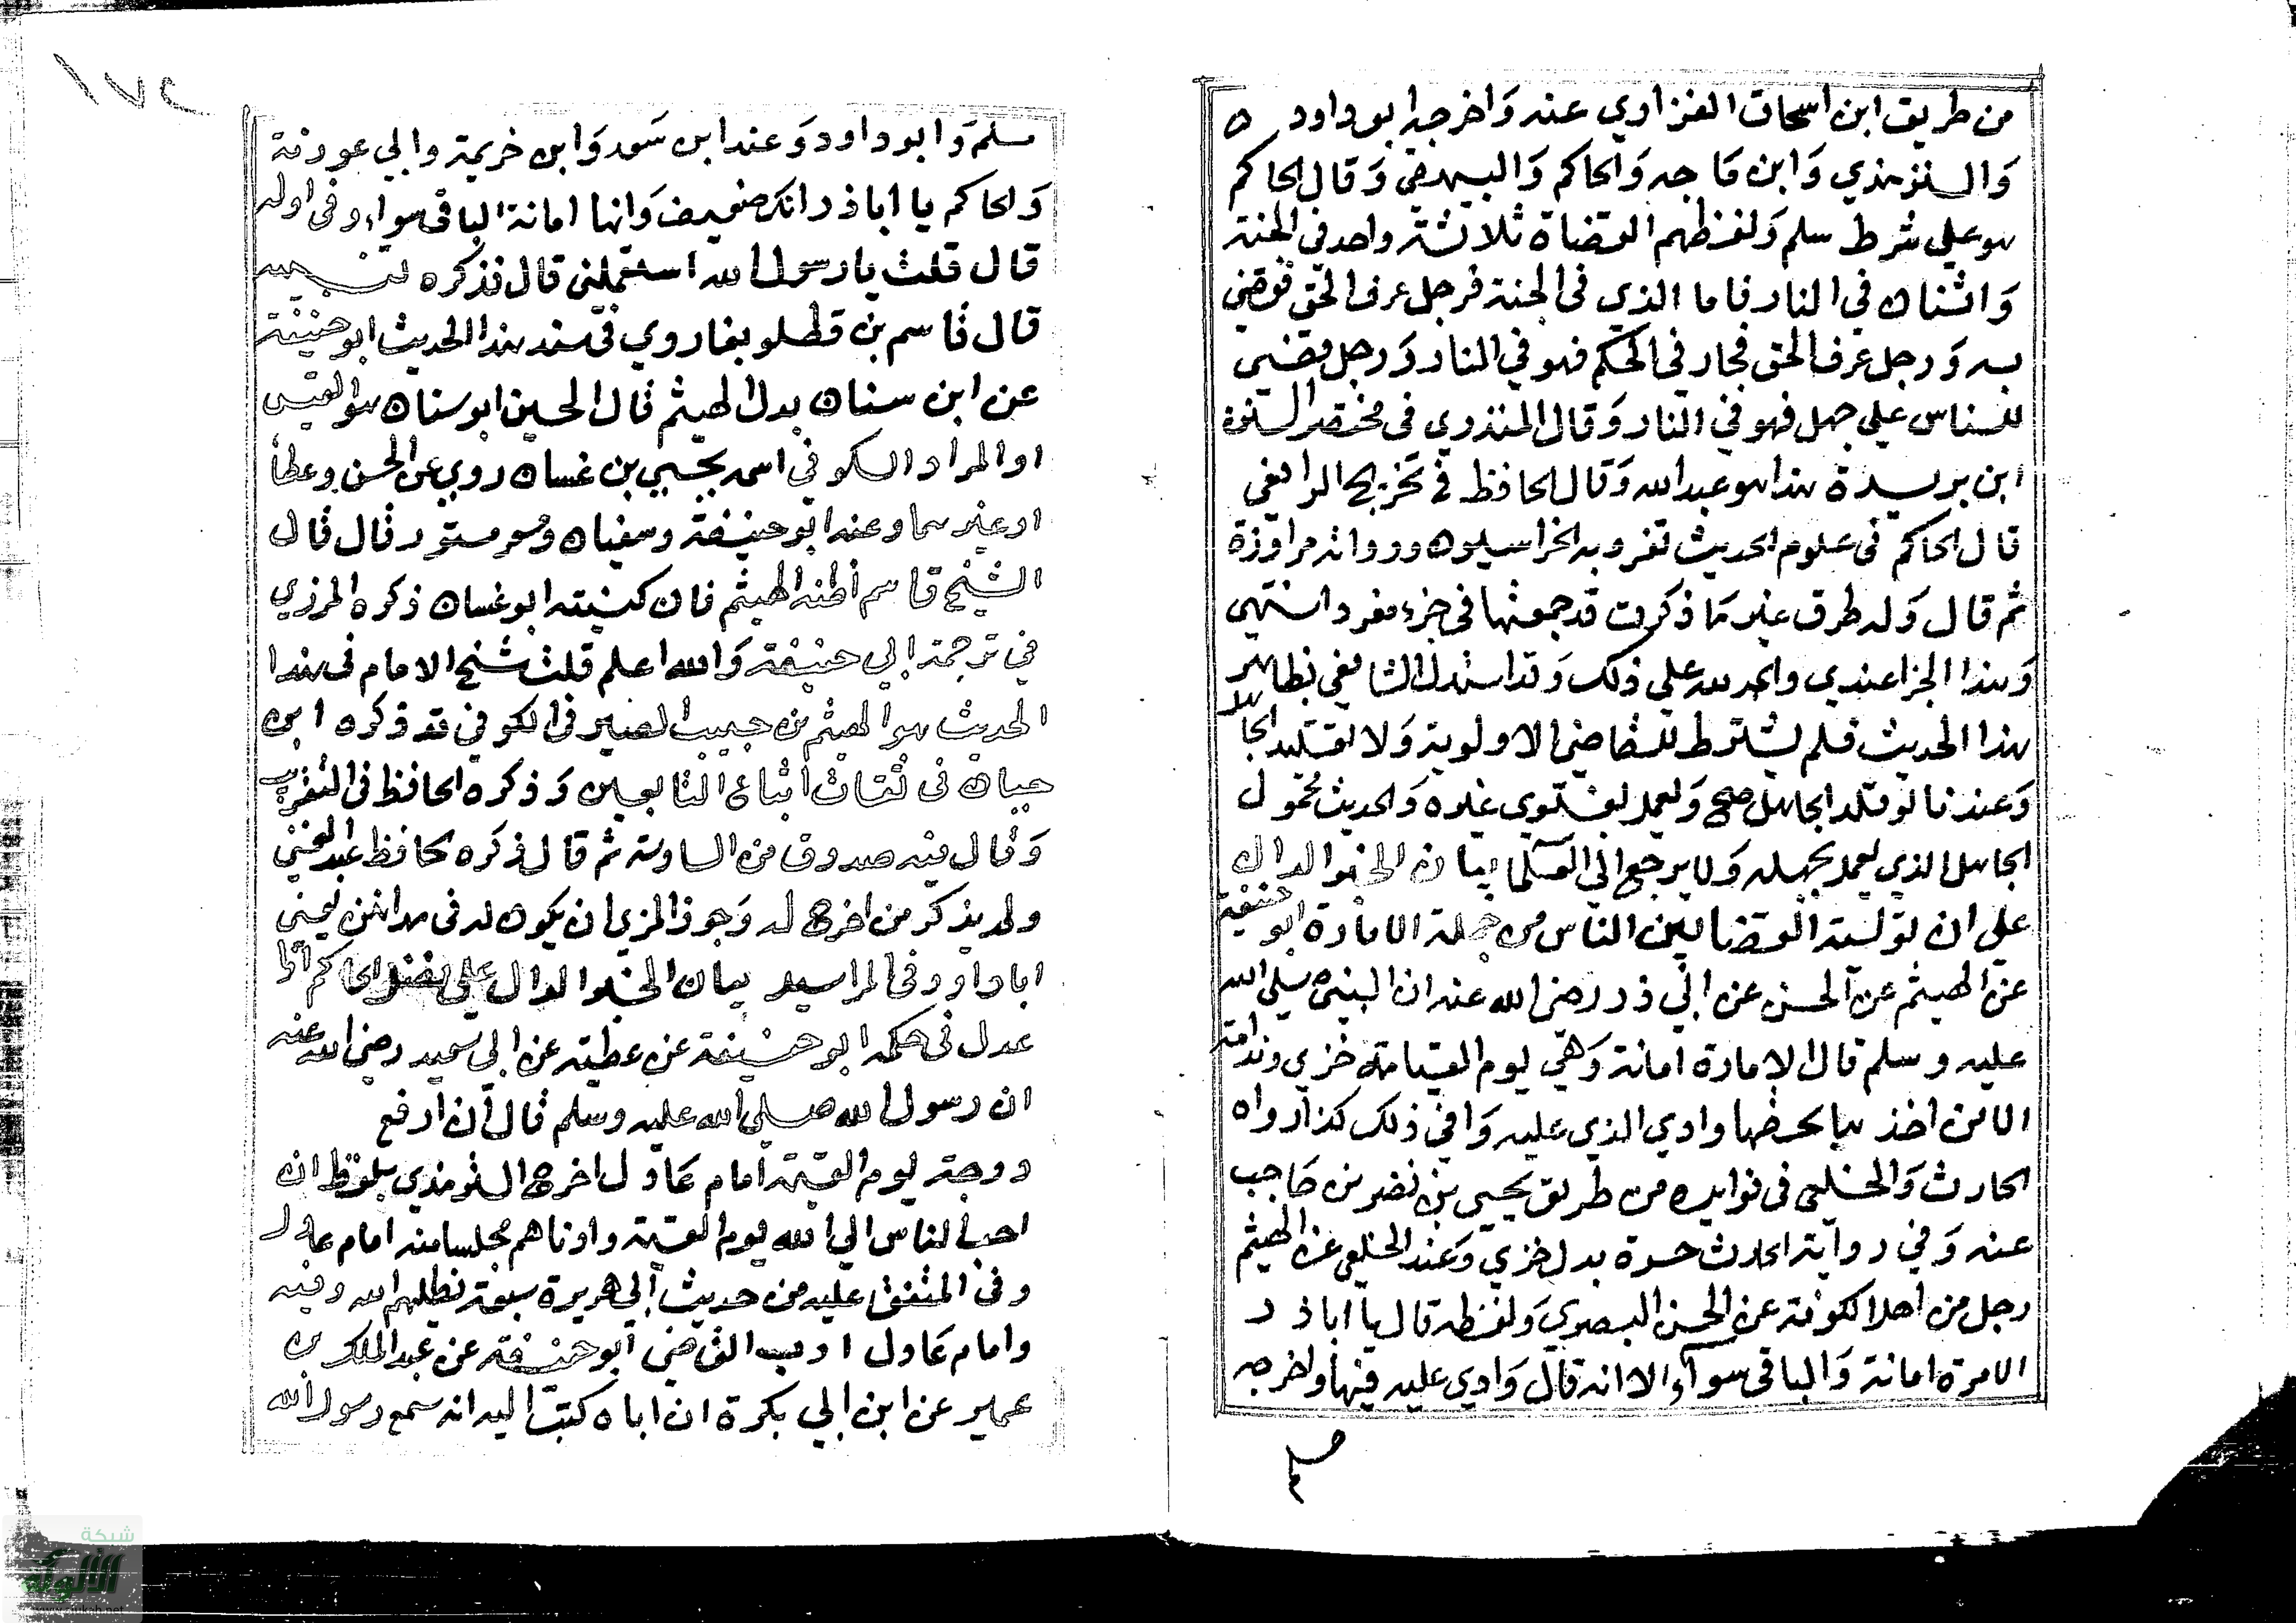 من طريق ابن اسحاق الفزاوي عنه وَاخرجه ابو داود ه
وَالترمذي وَابن ماجه وَالحاكم وَالبيهقي وَقال الحاكم
هو علي شرط مسلم وَلفظهم القضاة ثلاثة واحد في الجنة
وَاثنان في النار فاما الذي في الجنة فرجل عرف الحق فقضي
به وَرجل عرف الحق فجار في الحكم فهو في النار وَرجل قضي
للناس علي جهل فهو في النار وَقال المنذري في مختصر السنن
ابن بريدة هذا هو عبد الله وَقال الحافظ في تخريج الرافعي
قال الحاكم في علوم الحديث تفرد به الخراسانيون ورواته مراوزة
ثم قال وَله طرق غير مَا ذكرت قد جمعتها في جزء مفرد انتهي
وَهذا الجزا عندي والحمد لله علي ذلك وَقد استدل الشافعي بظاهر
هذا الحديث فلم يشترط للقاضي الاولوية وَلا تقليد الجاهل
وَعندنا لو قلد الجاهل صح وَيعمل بفتوي غيره وَالحديث محمول
الجاهل الذي يعمل بجهله وَلا يرجع الي العلما بيان الخبر الدال
علي ان تولية القضا بين الناس من جملة الامارة ابو حنيفة
عن الهيثم عن الحسن عن ابي ذر رضي الله عنه ان النبي صلي الله
عليه وسلم قال الامارة امانة وَهي يوم القيامة خزي وندامة
الا من اخذها بحقها وادي الذي عليه وَافي ذلك كذا رواه
الحارث وَالخلعي في فوايده من طريق يحيي بن نصر بن حَاجب
عنه وَفي رواية الحارث حسرة بدل خزي وَعند الخلعي عن الهيثم
رجل من اهل الكوفة عن الحسن البصري وَلفظه قال يا ابا ذ ر
الامرة امانة وَالباقي سوآء الا انه قال وَادي عليه فيها واخرجه
مسلم
١٧٢
مسلم وَابو داود وَعند ابن سَعد وَابن خزيمة وابي عوانة
وَالحاكم يا اباذر انك ضعيف وَانها امانة الباقي سواء وفي اوله
قال قلت يا رسول الله استعملني قال فذكره
قال قاسم بن قطلوبغا روي في سند هذا الحديث ابو حنيفة
عن ابن سنان بدل الهيثم قال الحسين ابو سنان هو القيسي
او المراد الكوفي اسمه يحيي بن غسان روي عن الحسن وعطا
او غيرهما وعنه ابو حنيفة وسفيان وهو مستور قال قال
الشيخ قاسم اظنه الهيثم فان كنيته ابو غسان ذكره المزي
في ترجمة ابي حنيفة وَالله اعلم قلت شيخ الامام في هذا
الحديث هو الهيثم بن حبيب الصيرفي الكوفي قد ذكره ابن
حبان في ثقات اتباع التابعين وَذكره الحافظ في التقريب
وَقال فيه صدوق من السادسة ثم قال ذكره الحافظ عبد الغني
ولم يذكر من اخرج له وَجوز المزي ان يكون له في يعني
ابا داود في المراسيل بيان الخبر الدال علي فضل الحاكم اذا
عدل في حكمه ابو حنيفة عن عطية عن ابي سعيد رضي الله عنه
ان رسول الله صلي الله عليه وسلم قال ان ارفع
درجة يوم القيمة امام عَادل اخرجه الترمذي بلفظ ان
احب الناس الي الله يوم القيمة وادناهم مجلسا منه امام عادل
وفي المتفق عليه من حديث ابي هريرة سبعة يظلهم الله وفيه
وامام عَادل ادب القاضي ابو حنيفة عن عبد الملك بن
عمير عن ابن ابي بكرة ان اباه كتب اليه انه سمع رسول الله
شبكة
الألوكة
www.alukah.net